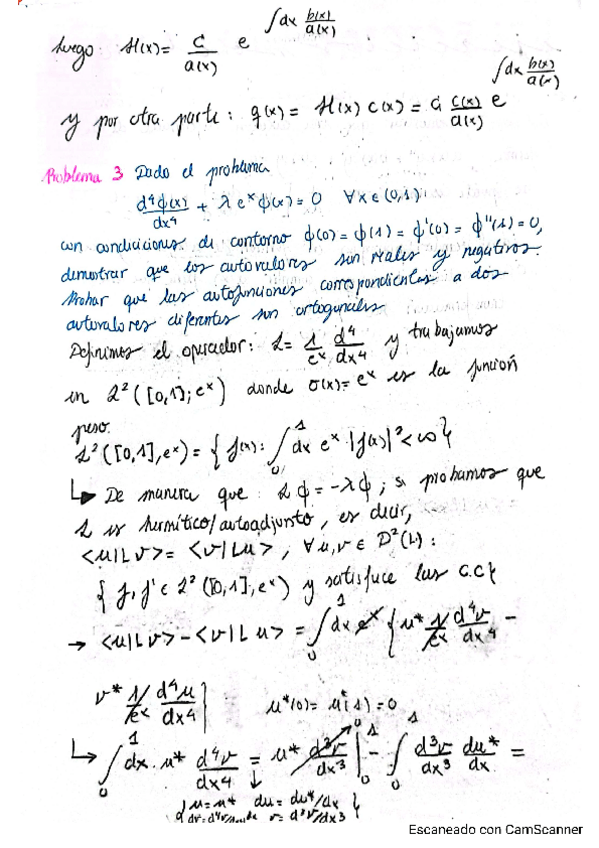 luego: H(x)= C/a(x) e^∫dx b(x)/a(x)
y por otra parte: q(x) = H(x) c(x) = C c(x)/a(x) e^∫dx b(x)/a(x)
Problema 3 Dado el problema
d⁴ϕ(x)/dx⁴ + λ eˣ ϕ(x) = 0 ∀x∈(0,1)
con condiciones de contorno ϕ(0) = ϕ(1) = ϕ'(0) = ϕ''(1) = 0,
demostrar que los autovalores son reales y negativos.
Probar que las autofunciones correspondientes a dos
autovalores diferentes son ortogonales
Definimos el operador: L = 1/eˣ d⁴/dx⁴ y trabajamos
en L²([0,1]; eˣ) donde σ(x)= eˣ es la función
peso.
L²([0,1],eˣ) = { f(x): ∫₀¹ dx eˣ |f(x)|² < ∞ }
↳ De manera que: Lϕ = -λϕ; si probamos que
L es hermítico/autoadjunto, es decir,
<u|Lv> = <v|Lu>, ∀u,v ∈ D²(L):
{ f, f' ∈ L²([0,1],eˣ) y satisface las c.c }
→ <u|Lv> - <v|Lu> = ∫₀¹ dx eˣ { u* 1/eˣ d⁴v/dx⁴ -
v* 1/eˣ d⁴u/dx⁴ } u*(0) = u*(1) = 0
↳ ∫₀¹ dx · u* d⁴v/dx⁴ = u* d³v/dx³ |₀¹ - ∫₀¹ d³v/dx³ du*/dx =
{ u = u* du = du*/dx v = d³v/dx³ }
Escaneado con CamScanner